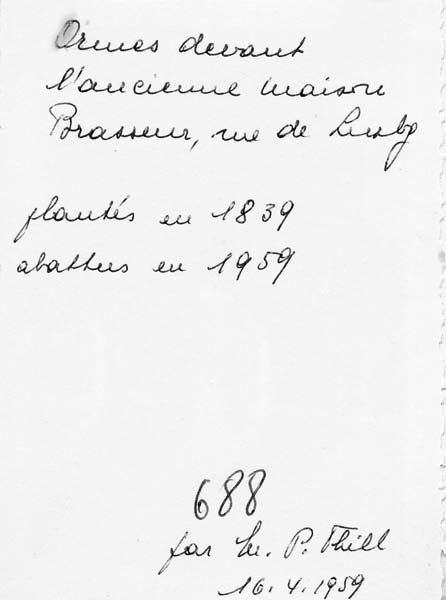 Ormes devant
l'ancienne maison
Brasseur, rue de Luxbg
plantés en 1839
abattus en 1959
688
par M. P. Thill
16.4.1959